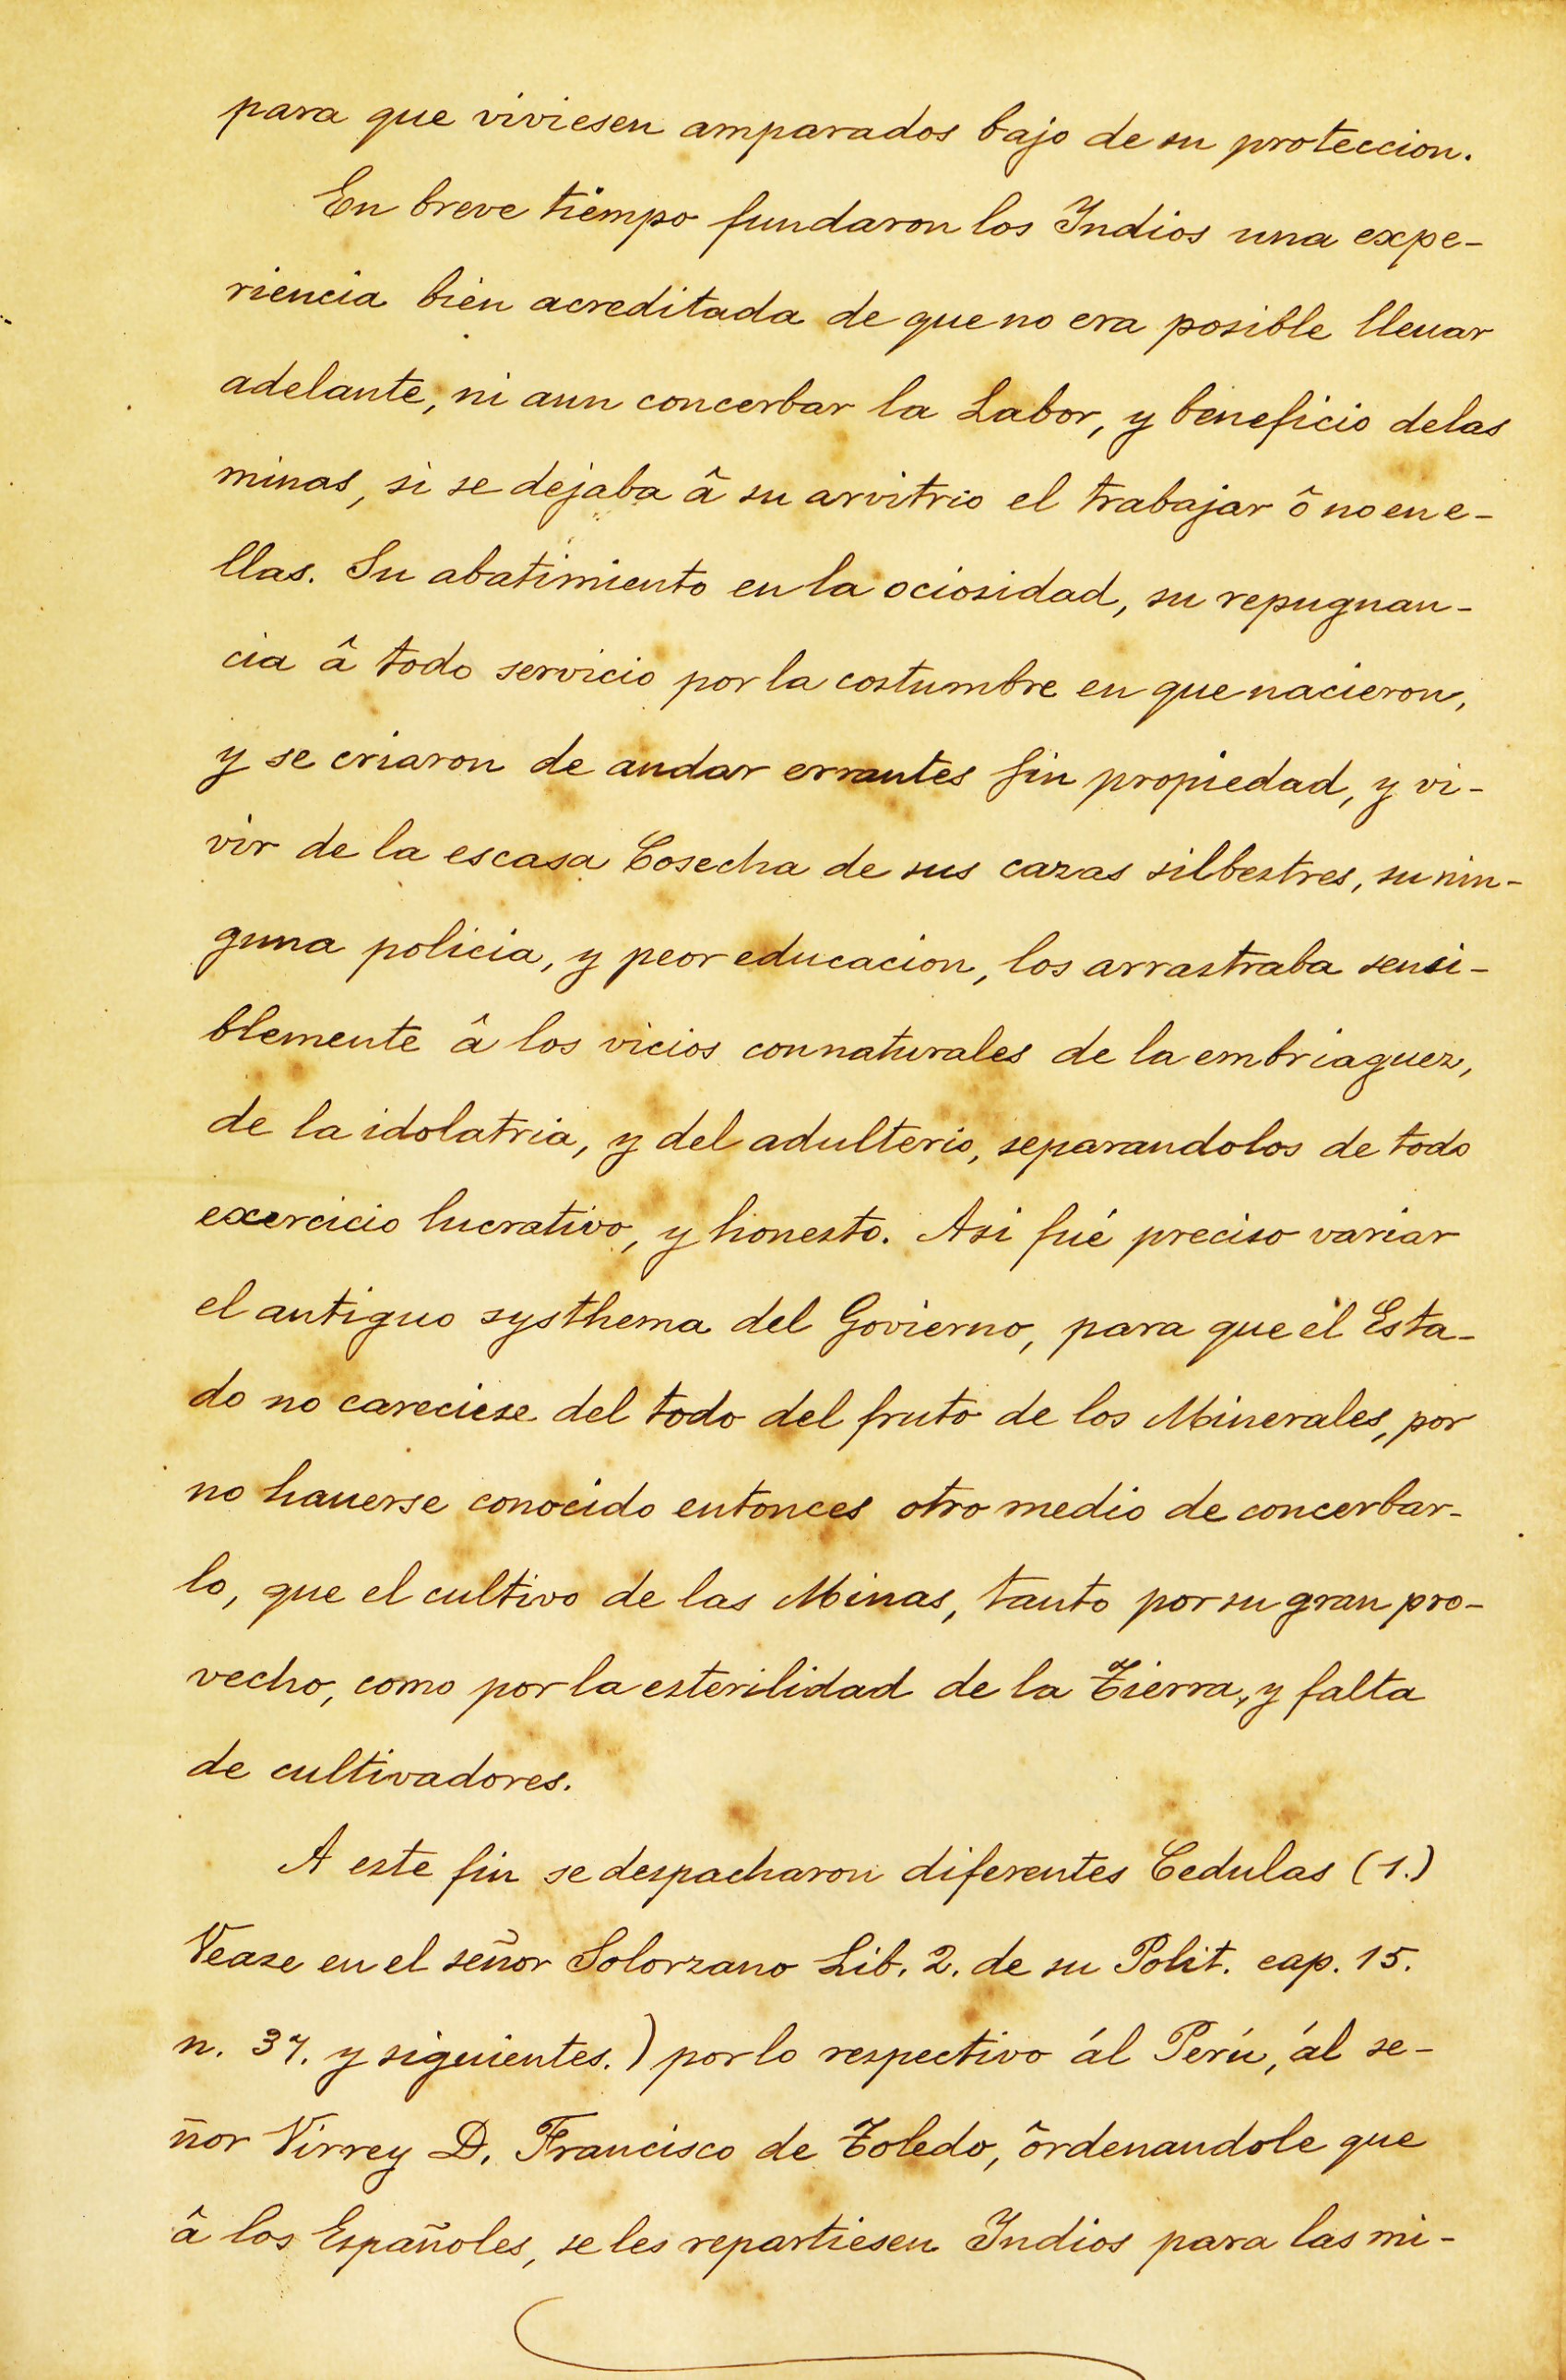 para que viviesen amparados bajo de su proteccion.
En breve tiempo fundaron los Indios una expe-
riencia bien acreditada de que no era posible lleuar
adelante, ni aun concerbar la Labor, y beneficio delas
minas, si se dejaba â su arvitrio el trabajar ô no en e-
llas. Su abatimiento en la ociosidad, su repugnan-
cia â todo servicio por la costumbre en que nacieron,
y se criaron de andar errantes sin propiedad, y vi-
vir de la escasa Cosecha de sus cazas silbestres, su nin-
guna policia, y peor educacion, los arrastraba sensi-
blemente â los vicios connaturales de la embriaguez,
de la idolatria, y del adulterio, separandolos de todo
exercicio lucrativo, y honesto. Asi fué preciso variar
el antiguo systhema del Govierno, para que el Esta-
do no careciese del todo del fruto de los Minerales, por
no hauerse conocido entonces otro medio de concerbar-
lo, que el cultivo de las Minas, tanto por su gran pro-
vecho, como por la esterilidad de la Tierra, y falta
de cultivadores.
A este fin se despacharon diferentes Cedulas (1.)
Vease en el señor Solorzano Lib. 2. de su Polit. cap. 15.
n. 37. y siguientes.) por lo respectivo ál Perú, ál se-
ñor Virrey D. Francisco de Toledo, ôrdenandole que
â los Españoles, se les repartiesen Indios para las mi-